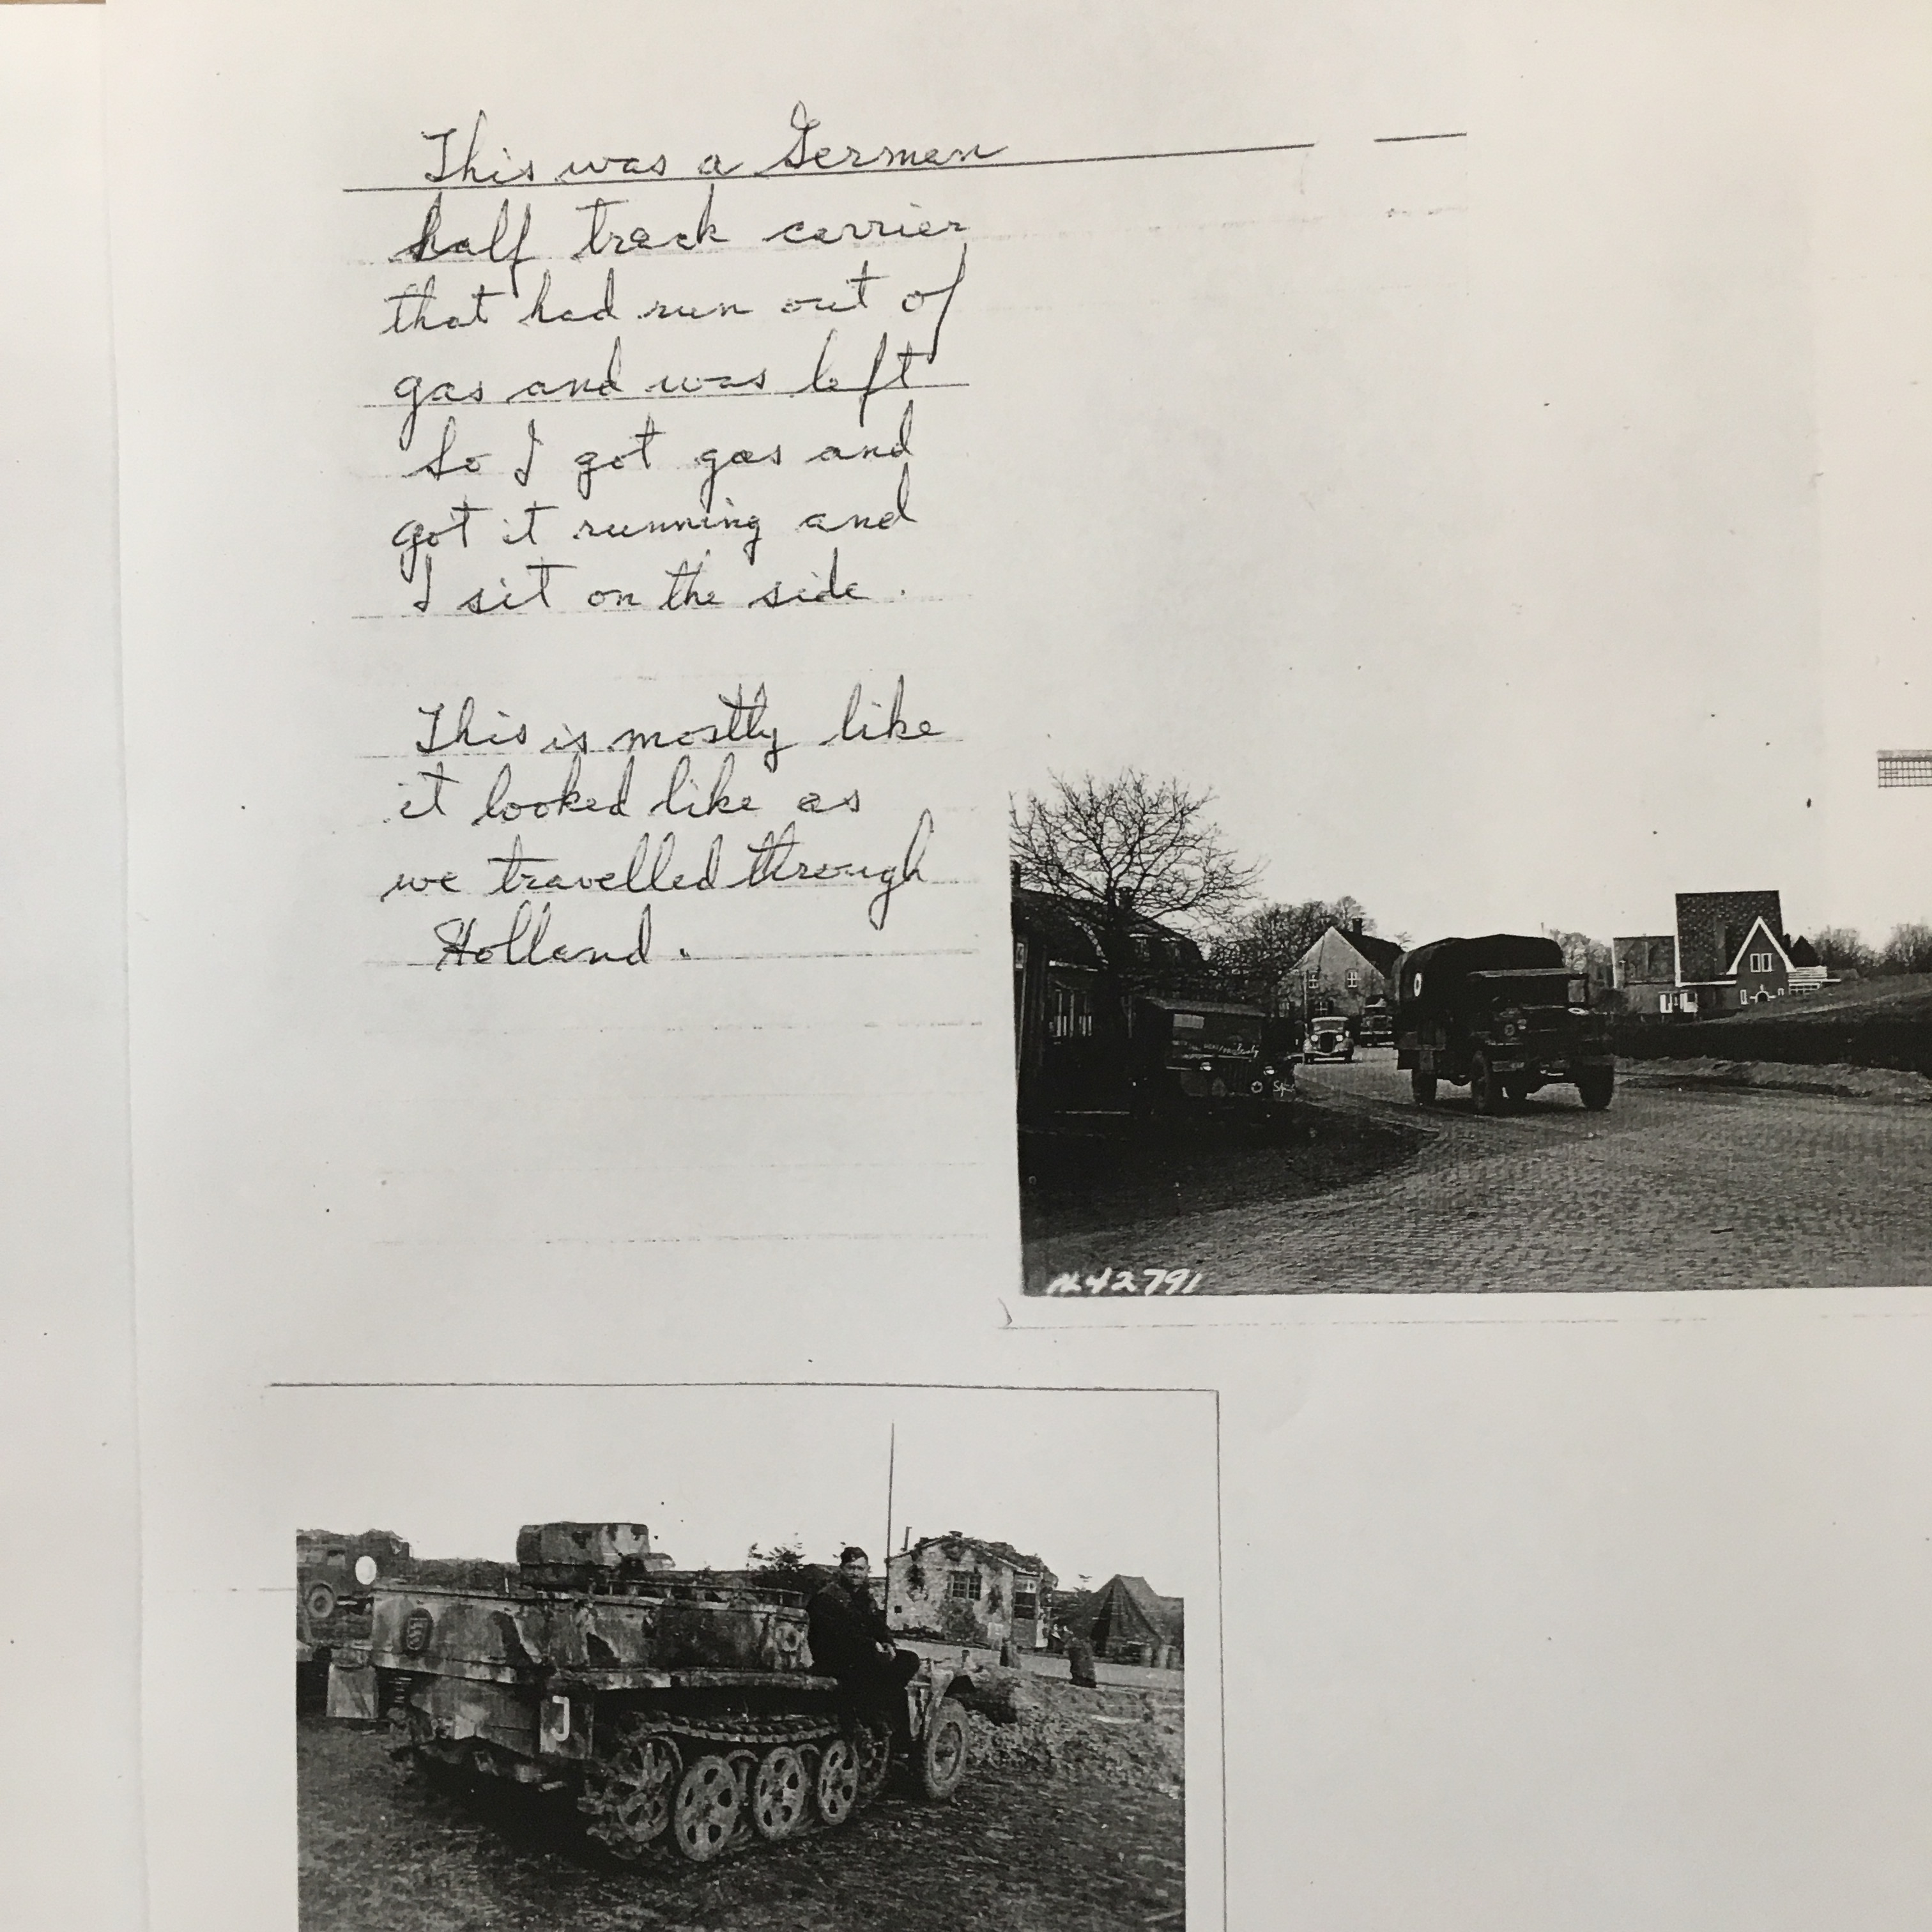 This was a German
half track carrier
that had run out of
gas and was left
So I got gas and
got it running and
I sit on the side.
This is mostly like
it looked like as
we travelled through
Holland.
42791
J